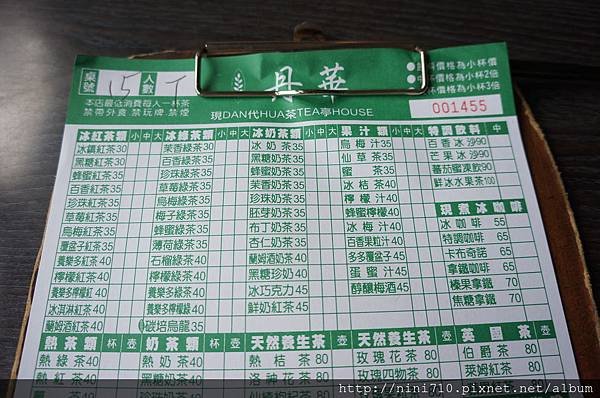 桌號 15 人數
本店最低消費每人一杯茶
禁帶外食.禁玩牌.禁煙
丹華
現DAN代HUA茶TEA亭HOUSE
價格為小杯價
價格為小杯2倍
價格為小杯3倍
001455
冰紅茶類 小 中 大
冰鎮紅茶30
黑糖紅茶30
蜂蜜紅茶35
百香紅茶35
珍珠紅茶35
草莓紅茶35
烏梅紅茶35
覆盆子紅茶35
養樂多紅茶40
檸檬紅茶40
養樂多檸檬紅40
冰淇淋紅茶40
蘭姆酒紅茶40
冰綠茶類 小 中 大
茉香綠茶30
百香綠茶35
珍珠綠茶35
草莓綠茶35
烏梅綠茶35
梅子綠茶35
蜂蜜綠茶35
薄荷綠茶35
石榴綠茶40
檸檬綠茶40
養樂多綠茶40
養樂多檸檬綠40
碳培烏龍35
冰奶茶類 小 中 大
冰奶茶35
黑糖奶茶35
蜂蜜奶茶35
茉香奶茶35
珍珠奶茶35
胚芽奶茶35
布丁奶茶35
杏仁奶茶35
蘭姆酒奶茶40
黑糖珍奶40
冰巧克力45
鮮奶紅茶45
果汁類 小 中 大
烏梅汁35
仙草茶35
蜜茶35
冰桔茶40
檸檬汁40
蜂蜜檸檬40
冰梅汁40
百香果粒汁40
多多覆盆子45
蛋蜜汁45
醇釀梅酒45
特調飲料 中
百香冰沙90
芒果冰沙90
蕃茄蜜淇飲90
鮮冰水果茶100
現煮冰咖啡
冰咖啡55
特調咖啡65
卡布奇諾65
拿鐵咖啡65
榛果拿鐵70
焦糖拿鐵70
熱茶類 杯 壺
熱綠茶40
熱紅茶40
奶茶類 杯 壺
熱奶茶40
黑糖奶茶40
天然養生茶 壺
熱桔茶80
洛神花茶80
天然養生茶 壺
玫瑰花茶80
玫瑰四物茶80
英國茶 壺
伯爵茶80
萊姆紅茶
http://nini710.pixnet.net/album